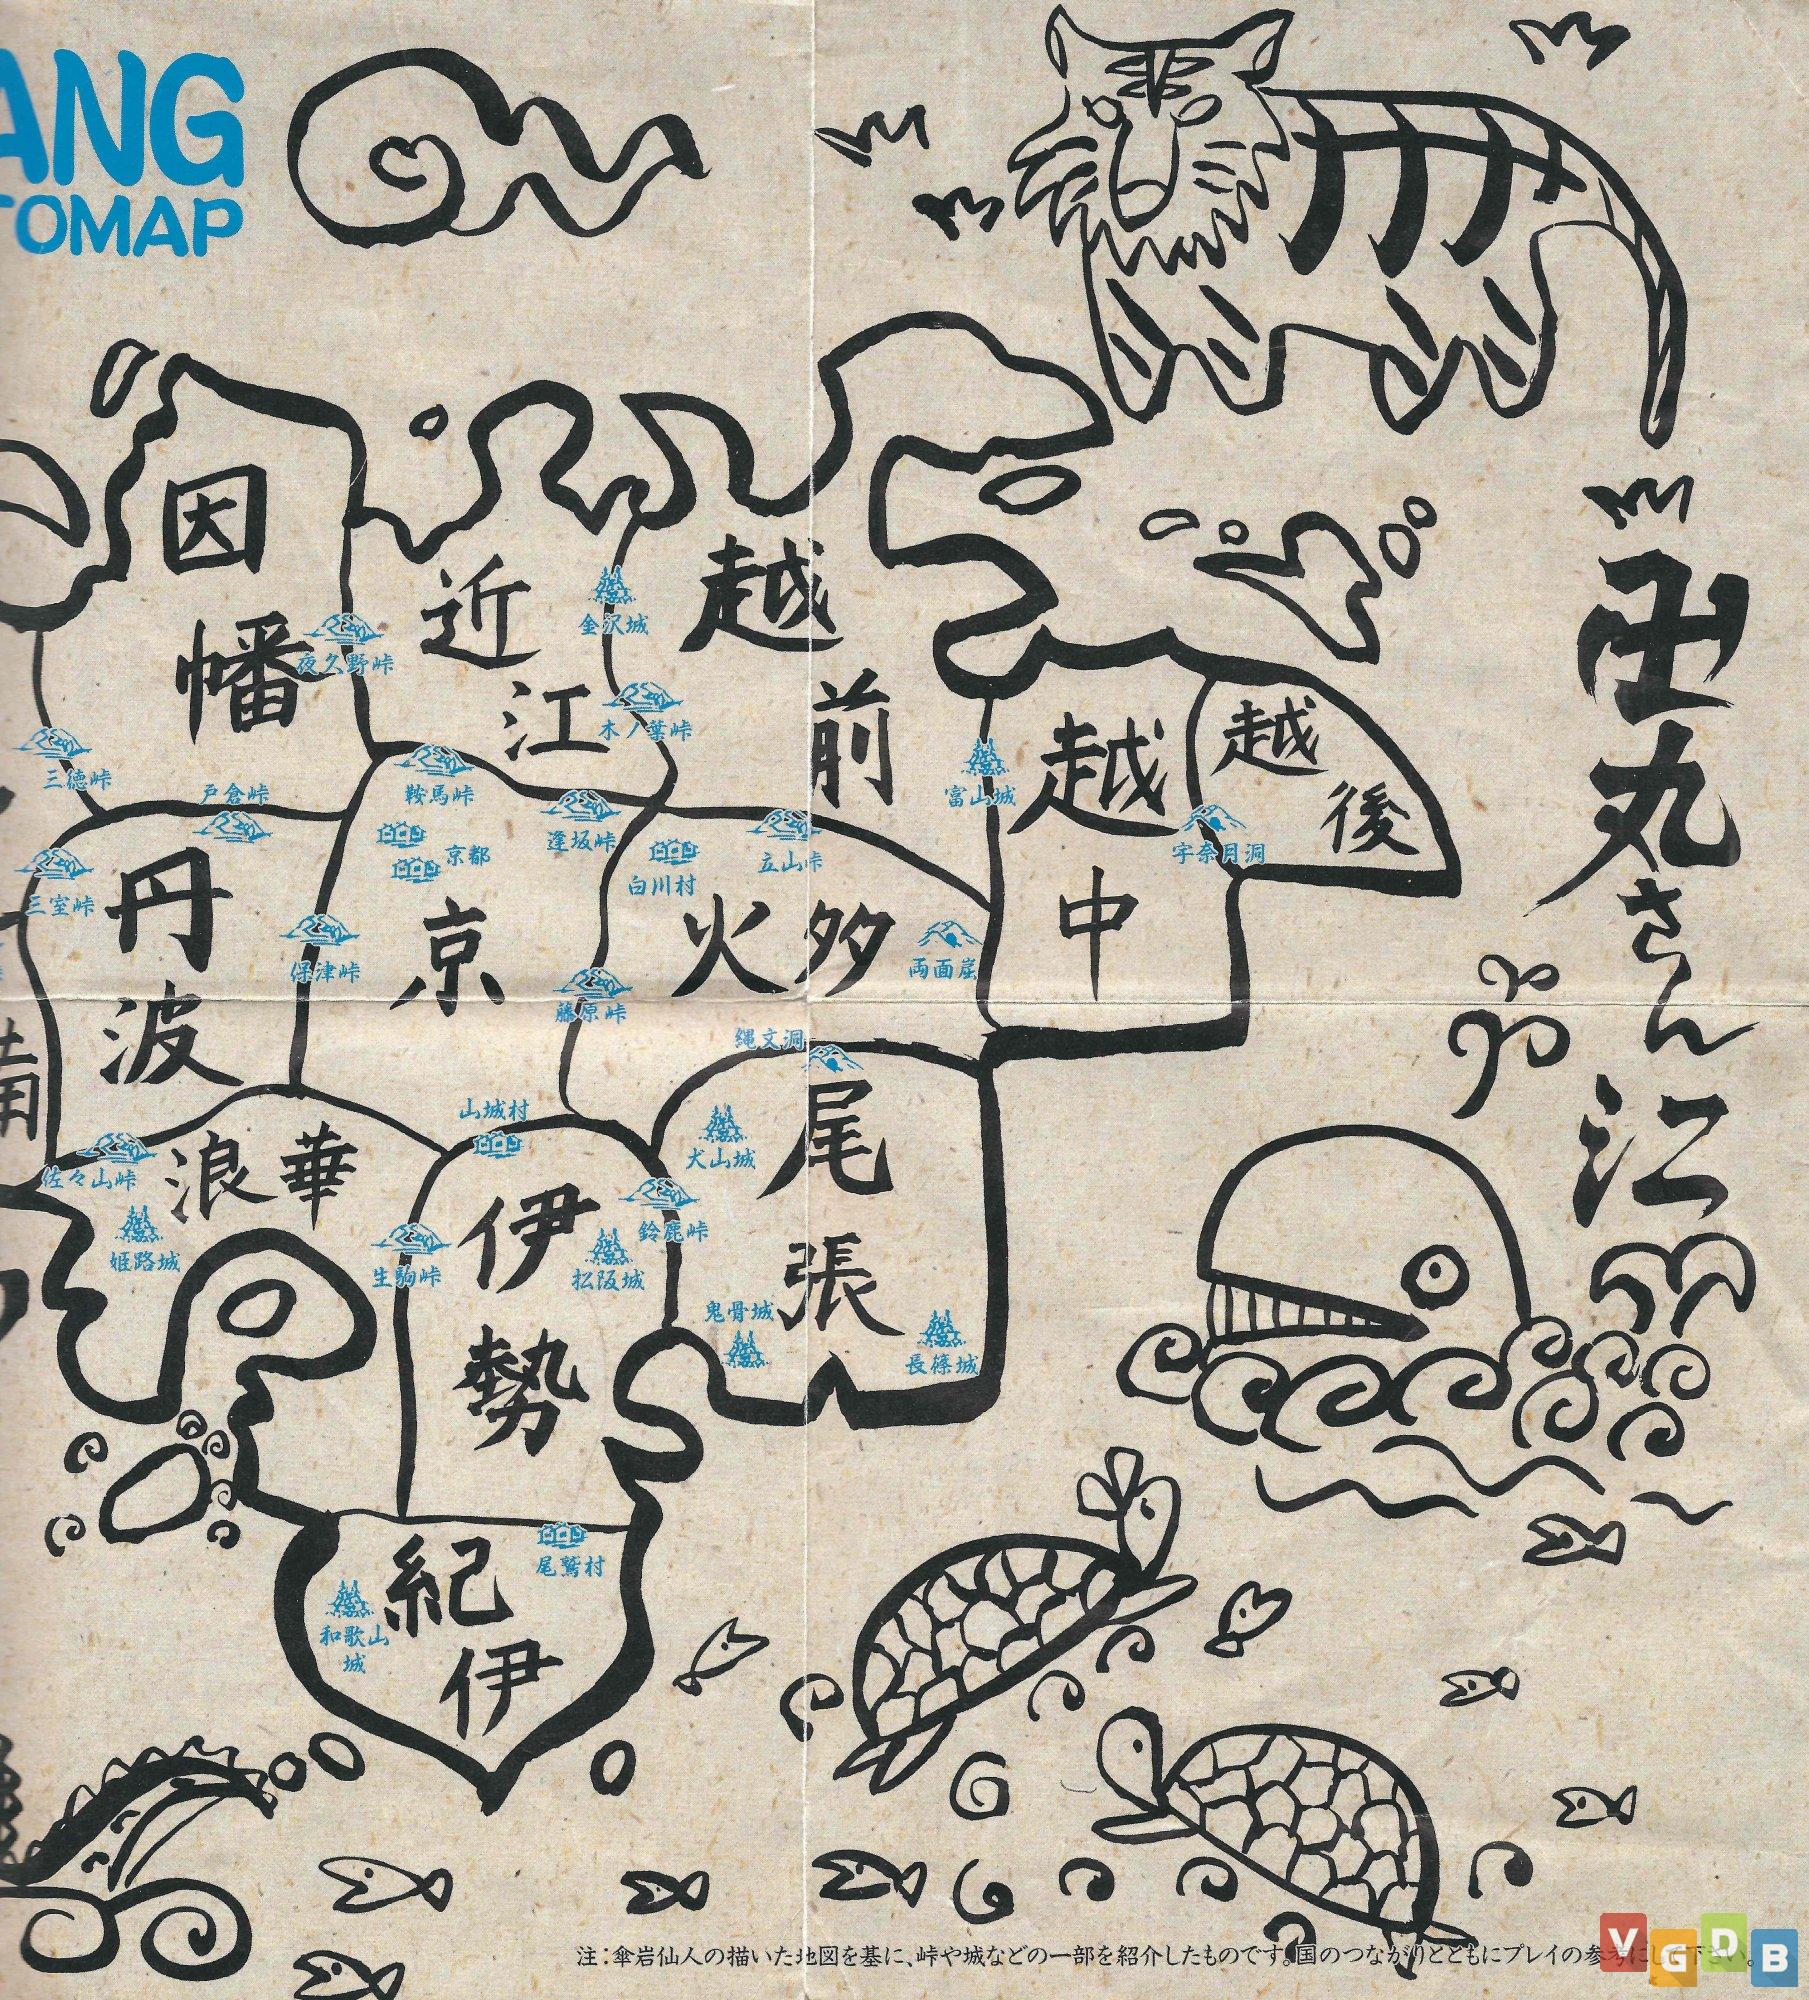 ANG
TOMAP
因幡
近江
越前
越中
越後
金沢城
夜久野峠
木ノ葉峠
三徳峠
戸倉峠
鞍馬峠
逢坂峠
立山峠
富山城
宇奈月洞
京都
白川村
三室峠
丹波
京
火多
保津峠
藤原峠
両面崫
縄文洞
尾張
山城村
犬山城
佐々山峠
浪華
伊勢
鈴鹿峠
姫路城
生駒峠
松阪城
鬼骨城
長篠城
紀伊
尾鷲村
和歌山城
卍丸さん江
注:傘岩仙人の描いた地図を基に、峠や城などの一部を紹介したものです。国のつながりとともにプレイの参考にして下さい。
VGDB